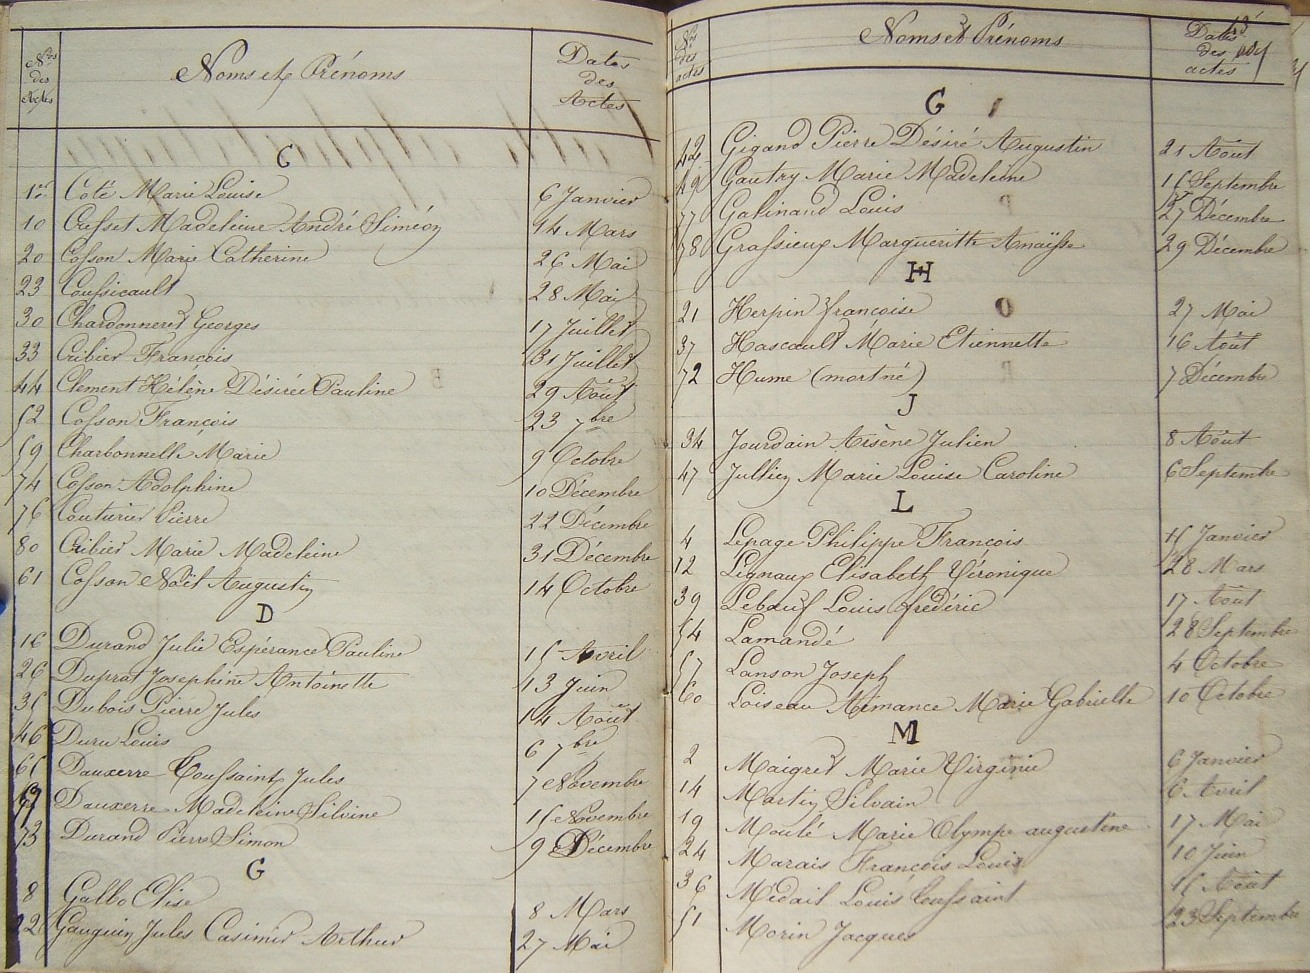 Nos des Actes
Noms et Prénoms
Dates des Actes
C
1er Coté Marie Louise 6 Janvier
10 Cresset Madeleine André Siméon 14 Mars
20 Cosson Marie Catherine 26 Mai
23 Coussicault 28 Mai
30 Chardonneret Georges 17 Juillet
33 Cribier François 31 Juillet
44 Clement Hélène Désirée Pauline 29 Août
52 Cosson François 23 7bre
59 Charbonnelle Marie 9 Octobre
74 Cosson Adolphine 10 Décembre
76 Couturier Pierre 22 Décembre
80 Cribier Marie Madeleine 31 Décembre
61 Cosson Noël Augustin 14 Octobre
D
16 Durand Julie Espérance Pauline 15 Avril
26 Duprat Josephine Antoinette 13 Juin
35 Dubois Pierre Jules 14 Août
46 Duru Louis 6 7bre
65 Dauxerre Toussaint Jules 7 Novembre
Dauxerre Madeleine Silvine 15 Novembre
73 Durand Pierre Simon 9 Décembre
G
8 Galbo Elise 8 Mars
22 Gauguin Jules Casimir Arthur 27 Mai
Nos des actes
Noms et Prénoms
Dates des actes
G
42 Gigand Pierre Désiré Augustin 21 Août
49 Gautry Marie Madeleine 15 Septembre
77 Galinand Louis 27 Décembre
78 Grassieux Margueritte Anaïsse 29 Décembre
H
21 Herpin françoise 27 Mai
37 Hascault Marie Etiennette 16 Août
72 Hume (mort né) 7 Décembre
J
34 Jourdain Arsène Julien 8 Août
47 Jullien Marie Louise Caroline 6 Septembre
L
4 Lepage Philippe François 15 Janvier
12 Lignaux Elisabeth Véronique 28 Mars
39 Lebœuf Louis frédéric 17 Aout
54 Lamandé 28 Septembre
57 Lanson Joseph 4 Octobre
60 Loiseau Aimance Marie Gabrielle 10 Octobre
M
2 Maigret Marie Virginie 6 Janvier
14 Martin Silvain 6 Avril
19 Moulé Marie Olympe augustine 17 Mai
24 Marais François Louis 10 Juin
36 Médail Louis Toussaint 15 Août
51 Morin Jacques 23 Septembre